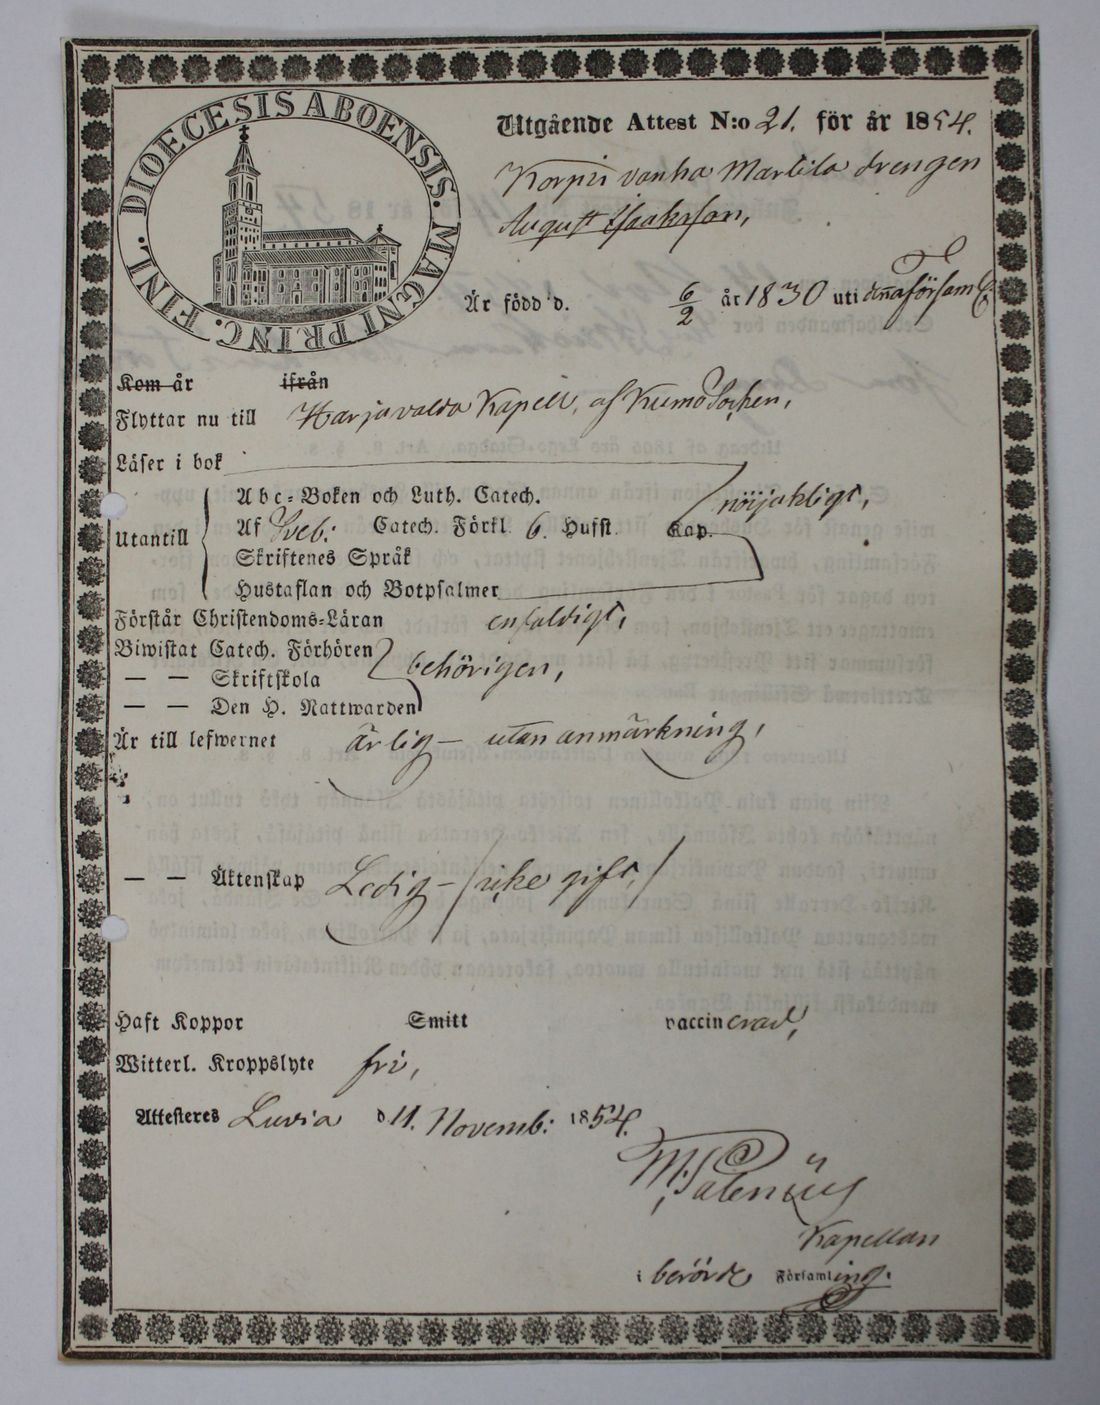 DIOECESIS ABOENSIS. MAGNI PRINC. FINL.
Utgående Attest N:o 21. för år 1854.
Korpii vanha Martila drengen
August Isaaksson,
Är född d. 6/2 år 1830 uti denna Församl
Kom år ifrån
Flyttar nu till Harjavalda Kapell, af Kumo Socken,
Läser i bok
Abc-Boken och Luth. Catech. nöijaktligt,
Utantill Af Sveb: Catech. Förkl. 6. Hufst. Kap.
Skriftenes Språk
Hustaflan och Botpsalmer
Förstår Christendoms-Läran enfaldigt,
Biwistat Catech. Förhören behörigen,
— — Skriftskola
— — Den H. Nattwarden
Är till lefwernet ärlig – utan anmärkning,
— — Äktenskap Ledig – /icke gift,/
Haft Koppor Smitt vaccinerad,
Witterl. Kroppslyte fri,
Attesteres Luvia d 11. Novemb: 1854.
M. Salenius
Kapellan
i berörde Församling.